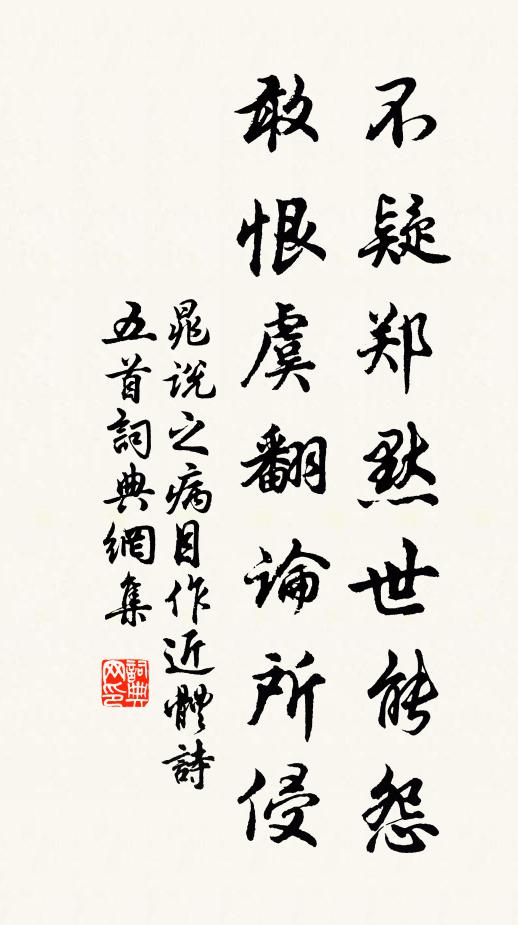 不疑郑默世能怨
敢恨虞翻論所侵
晁说之病目作近體詩
五首詞典網集
詞典网印